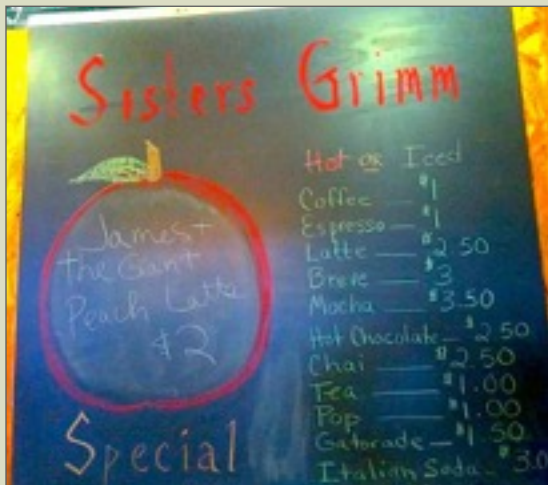 Sisters Grimm
James +
the Giant
Peach Latte
$2
Special
Hot or Iced
Coffee — $1
Espresso — $1
Latte — $2.50
Breve — $3
Mocha — $3.50
Hot Chocolate — $2.50
Chai — $2.50
Tea — $1.00
Pop — $1.00
Gatorade — $1.50
Italian Soda - $3.0